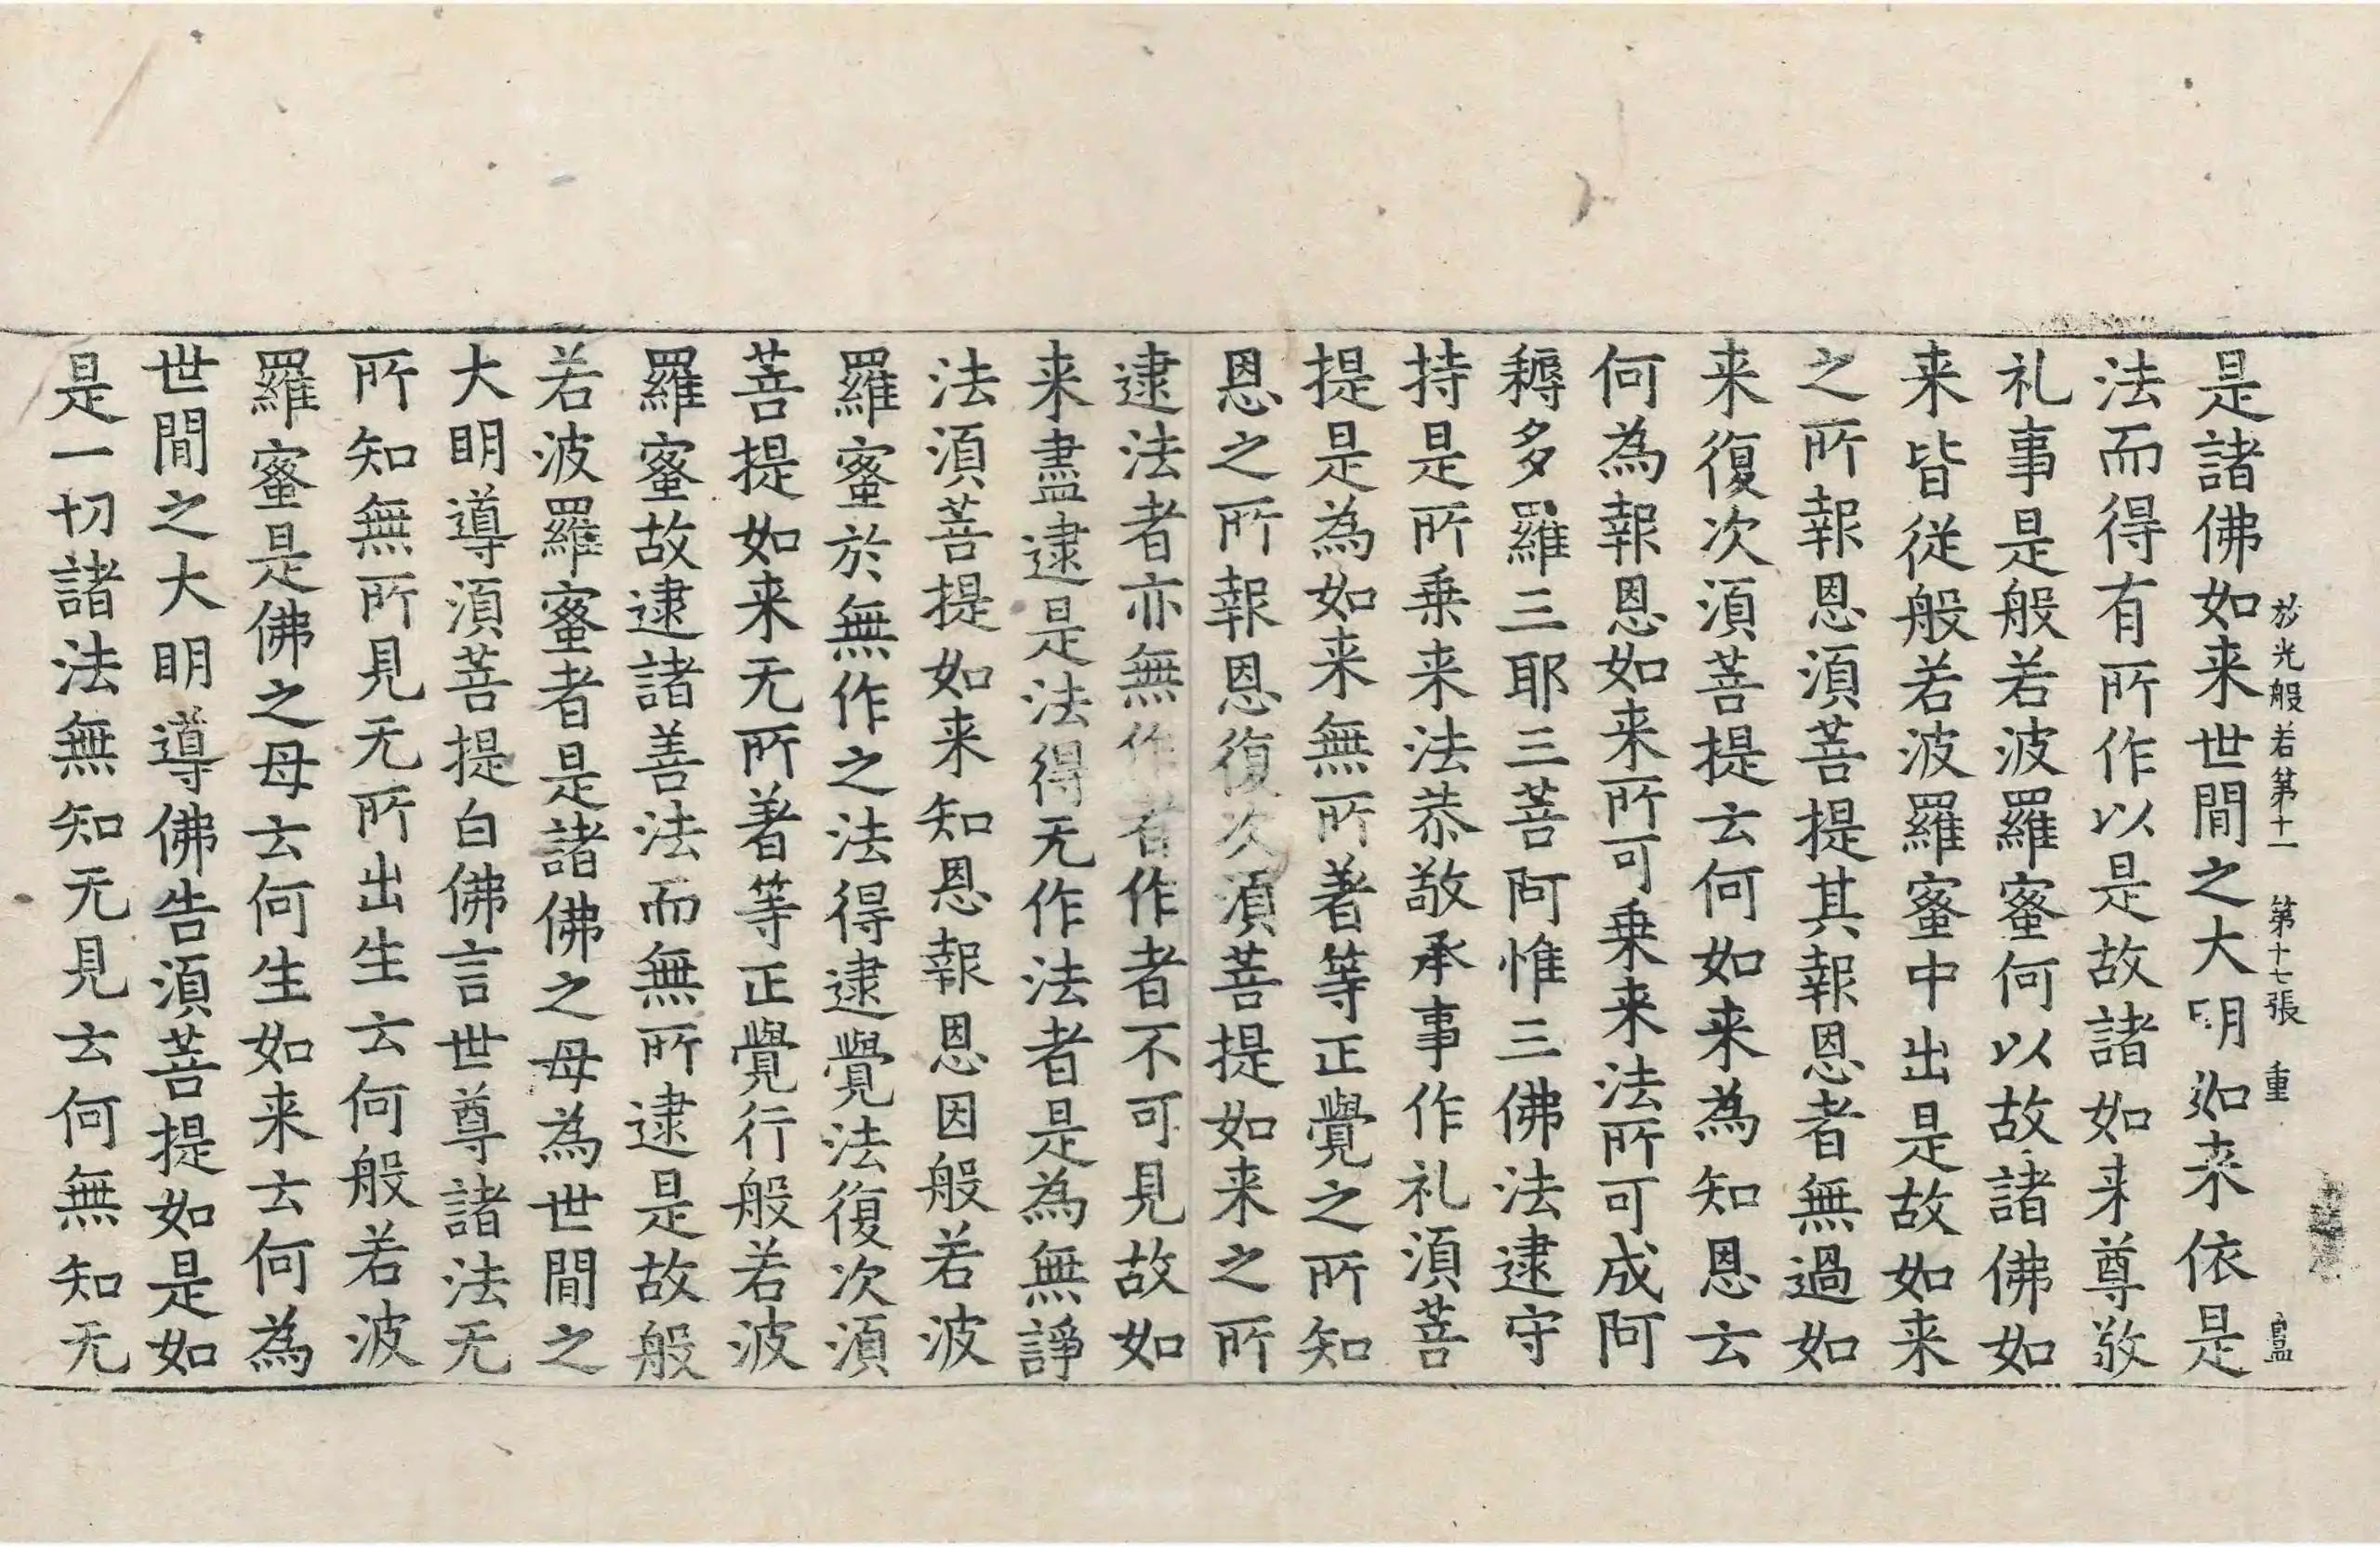 放光般若第十一 第十七張 重
是諸佛如来世間之大明如来依是
法而得有所作以是故諸如来尊敬
礼事是般若波羅蜜何以故諸佛如
来皆従般若波羅蜜中出是故如来
之所報恩須菩提其報恩者無過如
来復次須菩提云何如来為知恩云
何為報恩如来所可乗来法所可成阿
耨多羅三耶三菩阿惟三佛法逮守
持是所乗来法恭敬承事作礼須菩
提是為如来無所著等正覺之所知
恩之所報恩復次須菩提如来之所
逮法者亦無作者作者不可見故如
来盡逮是法得无作法者是為無諍
法須菩提如来知恩報恩因般若波
羅蜜於無作之法得逮覺法復次須
菩提如来无所著等正覺行般若波
羅蜜故逮諸善法而無所逮是故般
若波羅蜜者是諸佛之母為世間之
大明導須菩提白佛言世尊諸法无
所知無所見无所出生云何般若波
羅蜜是佛之母云何生如来云何為
世間之大明導佛告須菩提如是如
是一切諸法無知无見云何無知无